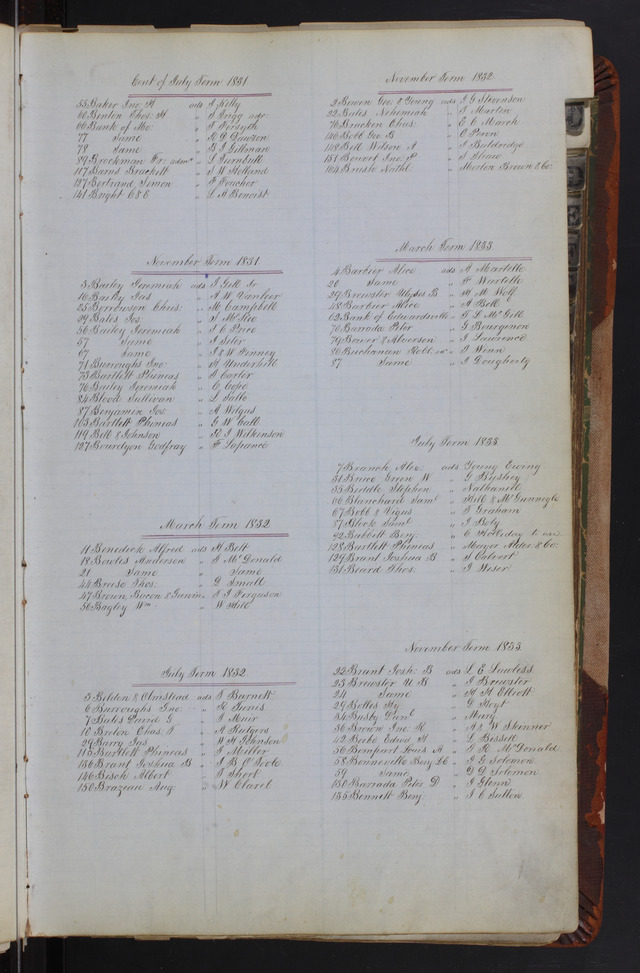 Cont of July Term 1831
55 Baker Jno H ads J Kelly
60 Benton Thos. H " J Grigg adr.
66 Bank of Mo " T Forsyth
77 Same " R G Dawson
78 Same " B J Gilman
89 Brockman Fr. adm. " J Turnbull
117 Barns Brackett " J W Holland
127 Bertrand Simon " F Foucher
141 Bright & " L A Benoist
November Term 1831
3 Bailey Jeremiah ads J Gill Jr
16 Bailey Jas "
25 Berreuson Chres. " M Campbell
29 Bates Jos. " J McKee
56 Bailey Jeremiah " J C Price
57 Same " J Siler
67 Same " J & W Finney
71 Burroughs Jno " H Underhill
75 Bartlett Phineas " J Carter
76 Bailey Jeremiah " C Cope
84 Blood Sullivan " L
87 Benjamin Jos. " A Wilgus
103 Bartlett Phineas " G W Call
119 Bell & Johnson " R J Wilkinson
137 Bourdyon Godfray " F Lafrance
March Term 1832
11 Benedick Alfred ads H Belt
18 Bowles Anderson " J McDonald
21 Same " Same
44 Breese Thos. " D Small
47 Brown, Bacon & " J J Ferguson
56 Bagley Wm. " W Hill
July Term 1832
3 Belden & Olmstead ads J Burnett
6 Burroughs Jno "
7 Bates David G " J Muir
10 Breton Chas. J " A Rutgers
29 Barry Jas " W H Johnson
115 Bartlett Phineas " J Miller
136 Brant Joshua B " J B O'Toole
146 Bisch Albert " J Short
150 Brazeau Aug " W Clarel
November Term 1832
2 Bowen Geo & Young ads J G Stevenson
22 Bates Nehemiah " J Martin
76 Bracken Chas. " E C March
146 Bobb Geo B " O Pann
148 Bell Wilson A " J Baldridge
151 Bouret Jno P " J Shaw
164 Brush Nathl. " Morton Brown & Co.
March Term 1833
4 Barbier Alce ads A Martelle
20 Same " F Martelle
29 Brewster Ulyses B " H M Wolf
18 Barbier Alce " A Bell
62 Bank of Edwardsville " T L McGill
70 Barrada Peter " G Bourginon
79 Bower & Alverson " J Lawrence
80 Buchanan Robt. " J Winn
87 Same " J Dougherty
July Term 1833
7 Branch Alce. ads Young Ewing
31 Bruce Green W " G Bushey
33 Biddle Stephen " Nathaniel
66 Blanchard Saml. " Hill & McGunnegle
67 Bobb & Vigus " J Graham
87 Block Saml. " J Boly
92 Babbitt Benj. " C Holliday to use
128 Bartlett Phineas " Mayor Alder. & Co.
129 Brant Joshua B " J Calvert
131 Beard Thos. " J Wiser
November Term 1833
22 Brant Josh. B ads L E Lawless
23 Brewster U B " J Brewster
24 Same " H H Elliott
29 Bolles Hy " G Hoyt
34 Busby Danl. " Mary
36 Brown Jno K " A & W Skinner
42 Beebe Edwd. H " L Bissell
56 Bompart Louis A " G R McDonald
58 Bonneville Benj L E " J G Solomon
59 Same " D D Solomon
150 Barrada Peter D " J Glenn
155 Bennett Benj. " J C Sutton